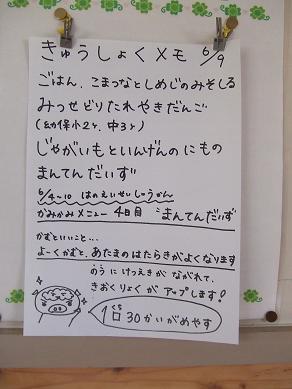 きゅうしょくメモ 6/9
ごはん、こまつなとしめじのみそしる
みっせどりたれやきだんご
(幼保小2ヶ、中3ヶ)
じゃがいもといんげんのにもの
まんてんだいず
6/4~10 はのえいせいしゅうかん
かみかみメニュー 4日目 "まんてんだいず
かむといいこと…
よーくかむと、あたまのはたらきがよくなります
のうにけつえきがながれて、
きおくりょくがアップします!
1口30かいがめやす
くち